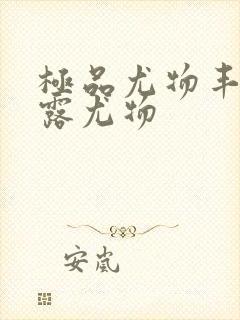 極品尤物丰
露尤物
安嵐